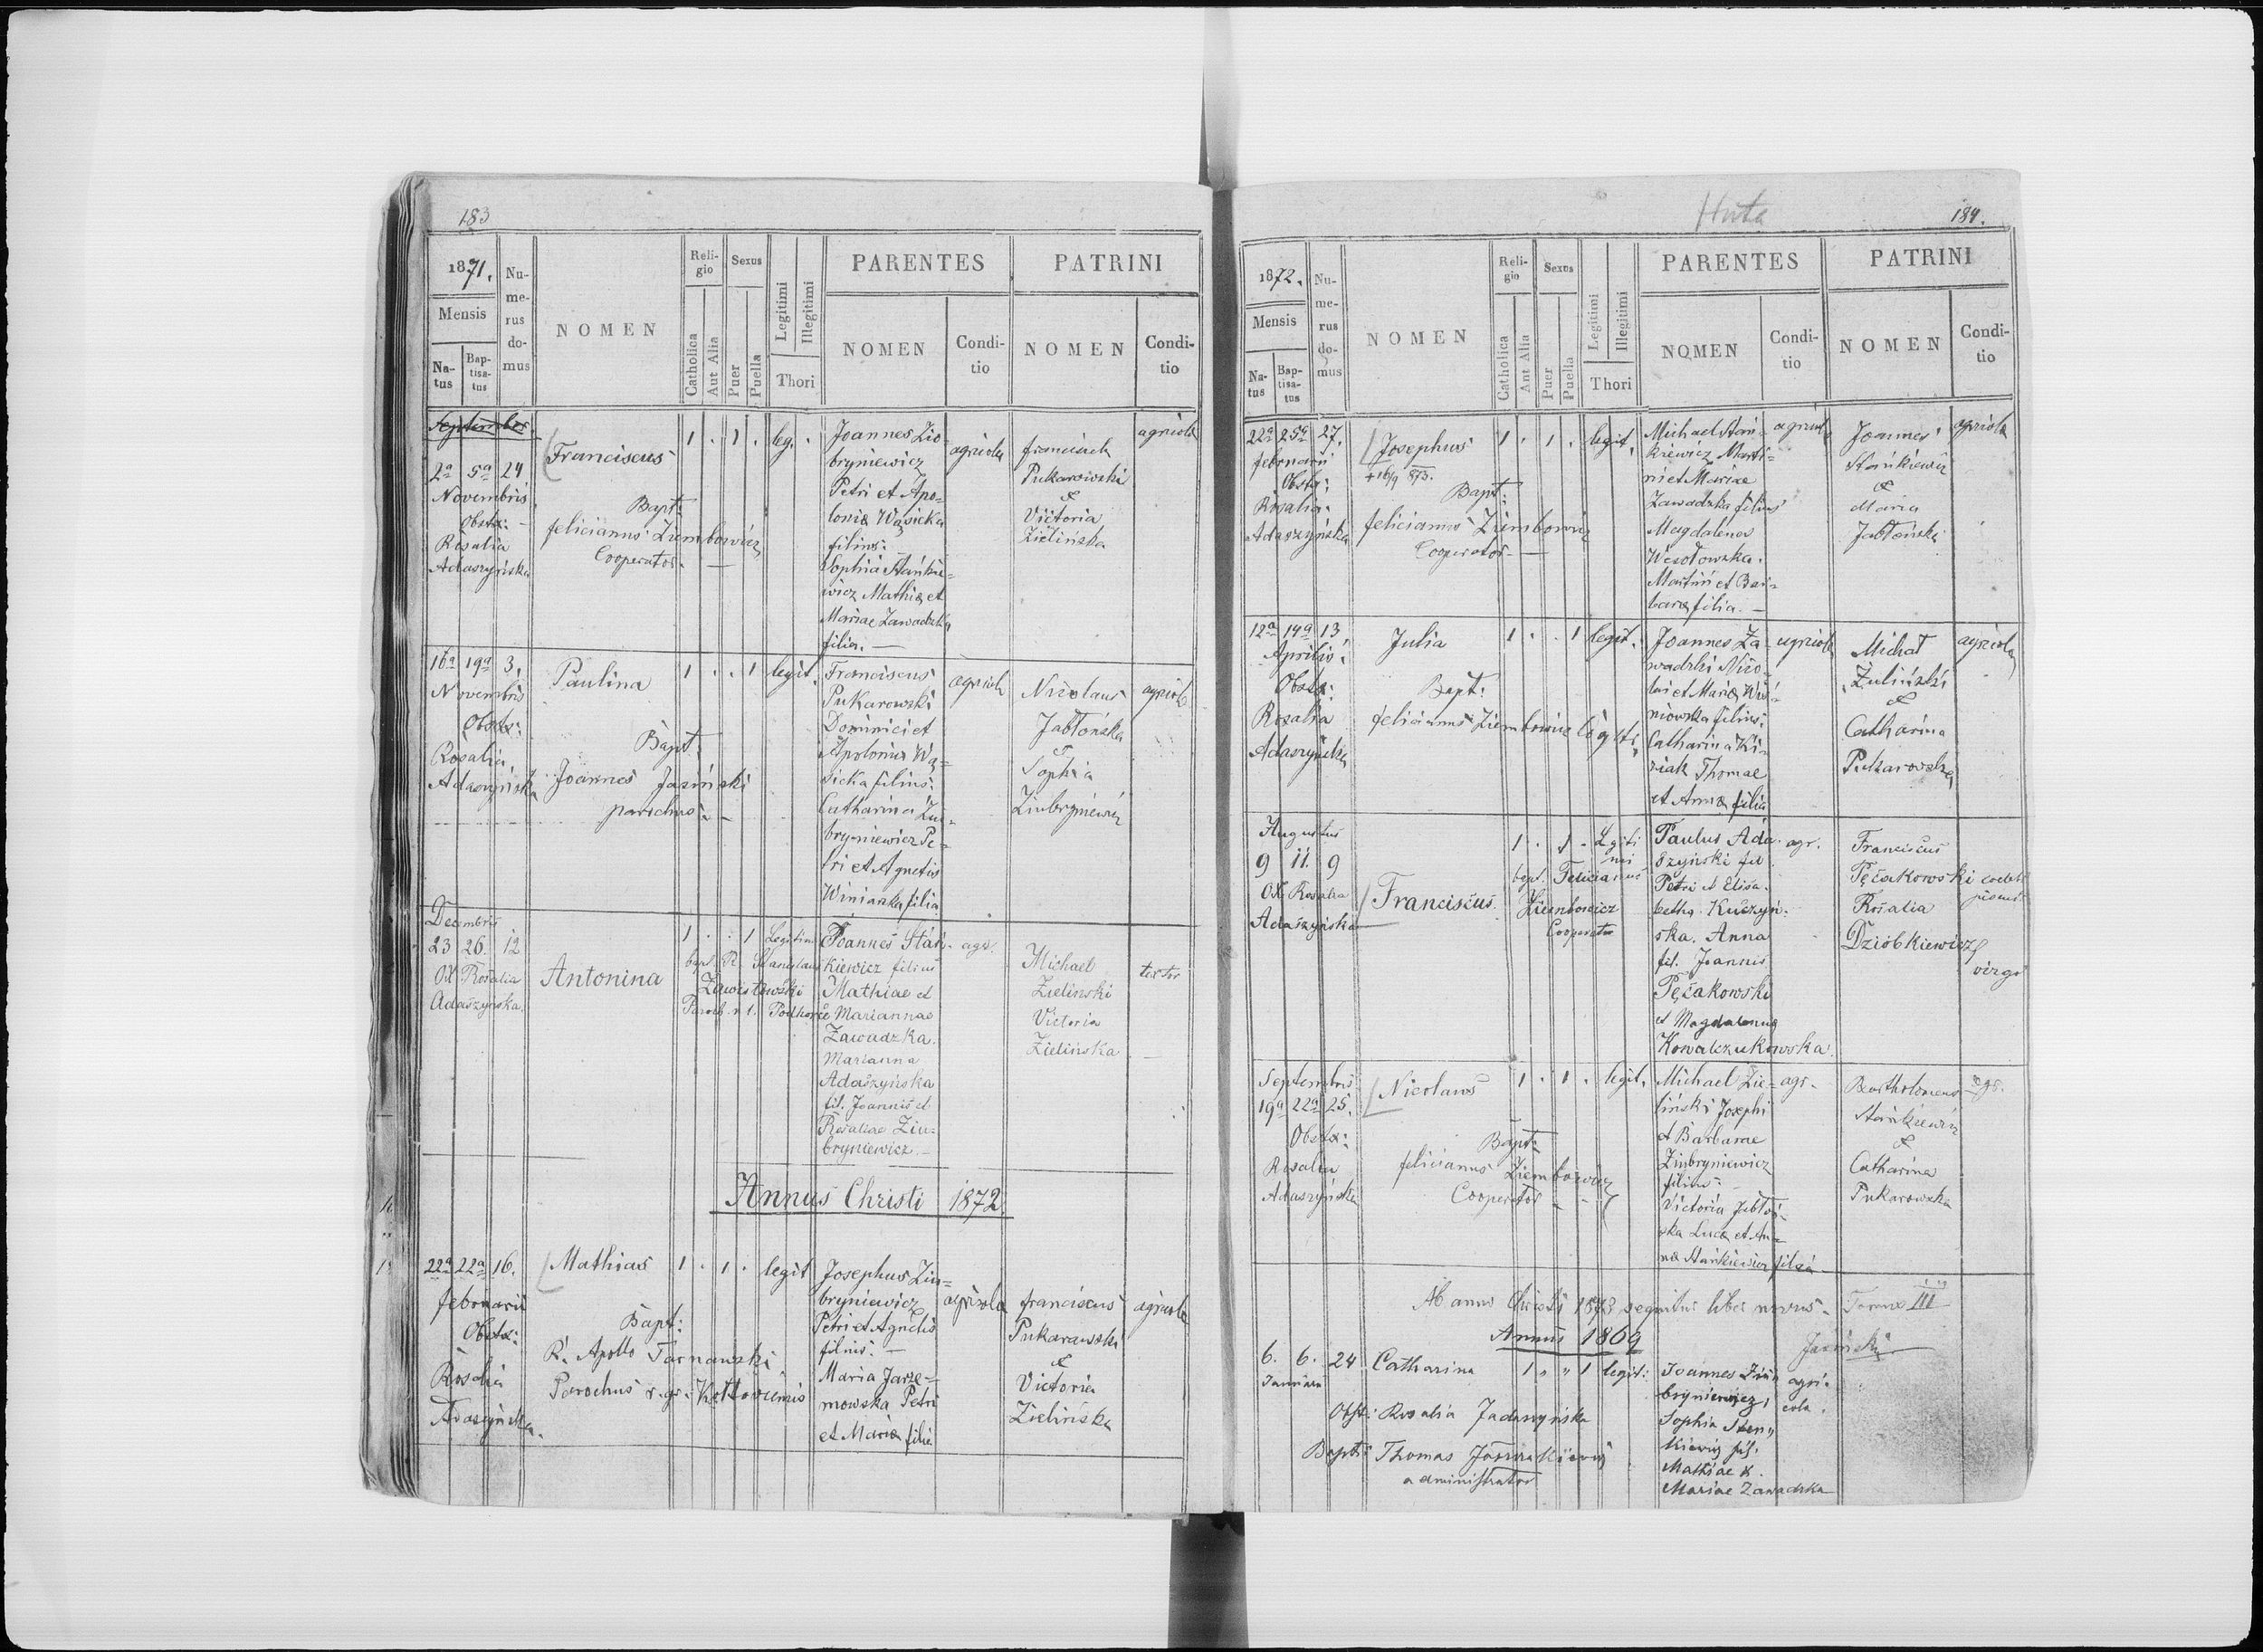 183
1871.
Mensis
Na-
tus
Bap-
tisa-
tus
Nu-
me-
rus
do-
mus
NOMEN
Reli-
gio
Catholica
Aut Alia
Sexus
Puer
Puella
Legitimi
Illegitimi
Thori
PARENTES
NOMEN
Condi-
tio
PATRINI
NOMEN
Condi-
tio
September
2a 5a 24
Novembris
Obstx:
Rosalia
Adaszyńska
Franciscus
Bapt:
felicianus Ziembowicz
Cooperator
1 . 1 . leg.
Joannes Zio-
bryniewicz
Petri et Apo-
loniæ Wąsicka
filius.
Sophia Stańkie-
wicz Mathiæ et
Mariae Zawadzka
filia.
agricola
Pukarowski
&
Victoria
Zielińska
agricola
16a 19a 3.
Novembris
Obstx:
Rosalia
Adaszyńska
Paulina
Bapt:
Joannes Jasiński
parochus
1 . . 1 legit.
Franciscus
Pukarowski
Dominici et
Apolonia Wą-
sicka filius.
Catharina Ziu-
bryniewicz Pe-
tri et Agnetis
Winiarska filia
agricola
Nicolaus
Jabłońska
&
Sophia
Ziubryniewicz
agricola
Decembris
23 26. 12
Ox Rosalia
Adaszyńska.
Antonina
1 . . 1 Legitim
bapt. R. Stanislaus
Zawistowski
Paroch. r. l. Podhorce
Joannes Stań-
kiewicz filius
Mathiae et
Mariannae
Zawadzka.
Marianna
Adaszyńska
fil. Joannis et
Rosaliae Ziu-
bryniewicz.
agr.
Michael
Zielinski
Victoria
Zielińska
textor
Annus Christi 1872.
22a 22a 16.
februarii
Obstx:
Rosalia
Adaszyńska.
Mathias
Bapt:
R. Apollo Tarnawski
Parochus r. gr. Kołtoviensis
1 . 1 . legit
Josephus Ziu-
bryniewicz
Petri et Agnetis
filius.
Maria Jarze-
mowska Petri
et Maria filia
agricola
franciscus
Pukarawski
&
Victoria
Zielińska
agricola
Huta
184.
1872.
Mensis
Na-
tus
Bap-
tisa-
tus
Nu-
me-
rus
do-
mus
NOMEN
Reli-
gio
Catholica
Aut Alia
Sexus
Puer
Puella
Legitimi
Illegitimi
Thori
PARENTES
NOMEN
Condi-
tio
PATRINI
NOMEN
Condi-
tio
22a 25a 27.
februarii
Obstx:
Rosalia
Adaszyńska
Josephus
+16/9 873.
Bapt:
felicianus Ziembowicz
Cooperator
1 . 1 . legit.
Michael Stań-
kiewicz Marti-
ni et Mariae
Zawadzka filius
Magdalena
Wesołowska.
Martini et Bar-
baræ filia.
agricola
Joannes
Stańkiewicz
&
Maria
Jabłońska
agricola
12a 14a 13.
Aprilis
Obstx:
Rosalia
Adaszyńska
Julia
Bapt:
felicianus Ziembowicz
1 . . 1 legit.
Joannes Za-
wadzki Nico-
lai et Mariæ Wiś-
niowska filius.
Catharina Ki-
ziak Thomae
et Annæ filia
agricola
Michał
Zieliński
&
Catharina
Pukarowska
agricola
Augustus
9 11. 9
Ox Rosalia
Adaszyńska
Franciscus.
1 . 1 . Legiti
mi
bapt. Felicianus
Ziembowicz
Cooperator
Paulus Ada-
szyński fil
Petri et Elisa-
betha. Kuczyń-
ska. Anna
fil. Joannis
Pęčakowski
et Magdalenna
Kowalczukowska.
agr.
Franciscus
Pęčakowski
Rosalia
Dziobkiewicz
virgo
Septembris
19a 22a 25.
Obstx:
Rosalia
Adaszyńska
Nicolaus
Bapt:
felicianus Ziembowicz
Cooperator
1 . 1 . legit.
Michael Zie-
liński Josephi
et Barbarae
Ziubryniewicz
filius.
Victoria Jabłoń-
ska Lucæ et An-
næ Stańkiewicz filia
agr.
Bartholomeus
Stańkiewicz
&
Catharina
Pukarowska
agr.
Ab anno Christi 1873 sequitur liber novus. Tomus III
Jasiński
Annus 1869
6. 6. 24
Januarii
Catharina
1 " " 1 legit:
Joannes Ziu
bryniewicz,
Sophia Stan-
kiewicz fil.
Mathiae &
Mariae Zawadzka
agri-
cola.
Obst: Rosalia Jadaszyńska
Bapt: Thomas
administrator